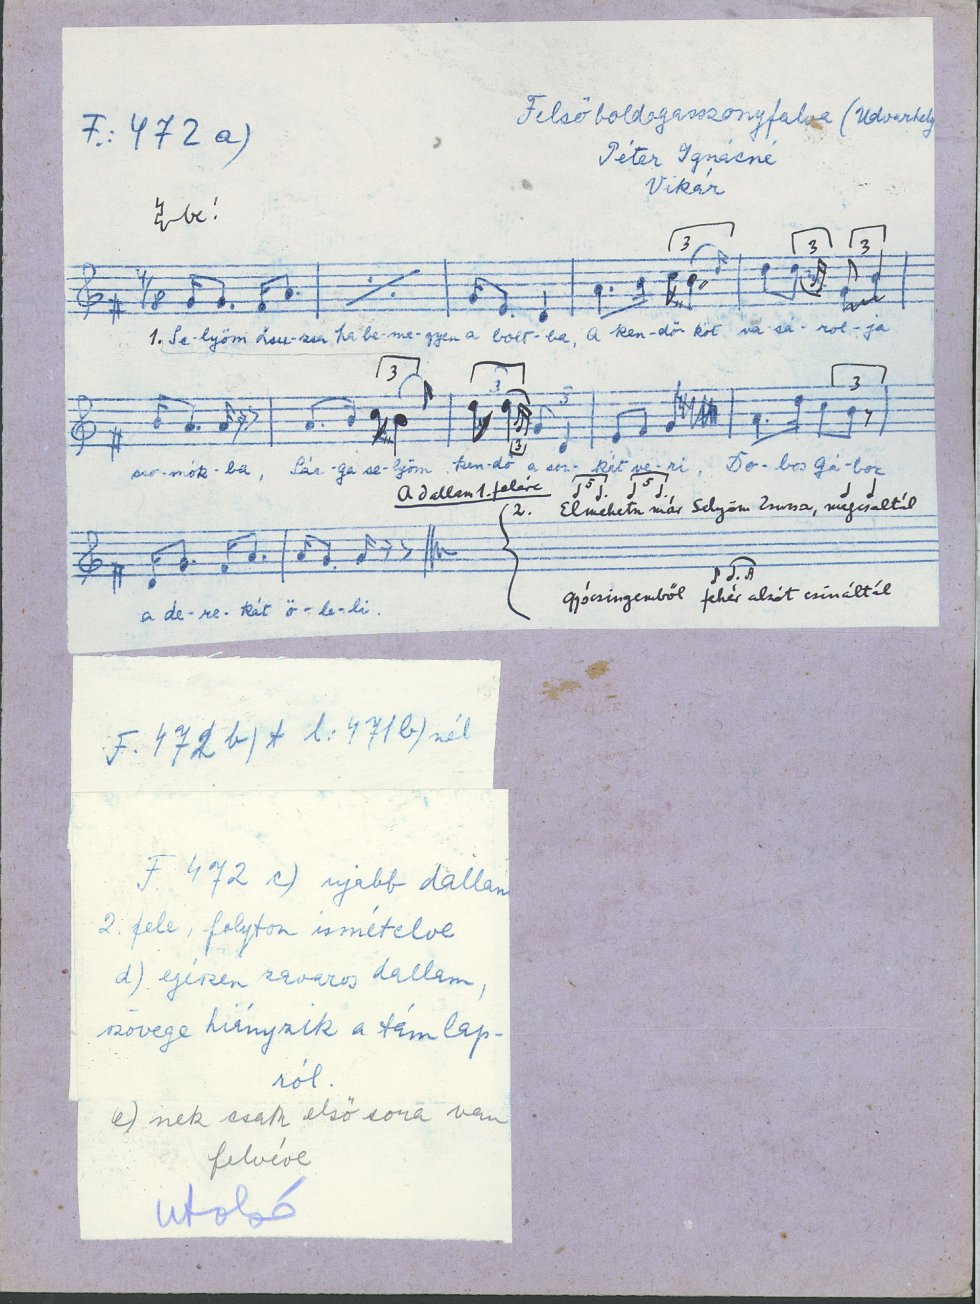 F.: 472 a)
Felsőboldogasszonyfalva (Udvarhely
Péter Ignácné
Vikár
be!
3 3 3
4/8
1. Se-lyöm Zsu-zsa ha be-me-gyen a bolt-ba, A ken-dő-köt vá-sá-rol-ja
3 3 3 3
szo-mók-ba, Sár-ga se-lyöm ken-dő a szo-kát ve-ri, Do-bos Gá-bor
A dallam 1. felére
2. Elmehetn már Selyöm Zsuzsa, megcsaltál
a de-re-kát ö-le-li.
gyócsingemből fehér alsót csináltál
F. 472 b) + l: 471 b) nél
F. 472 c) ujabb dallam
2. fele, folyton ismételve
d) egészen zavaros dallam,
szövege hiányzik a támlap-
ról.
e) nek csak első sora van
felvéve
utolsó